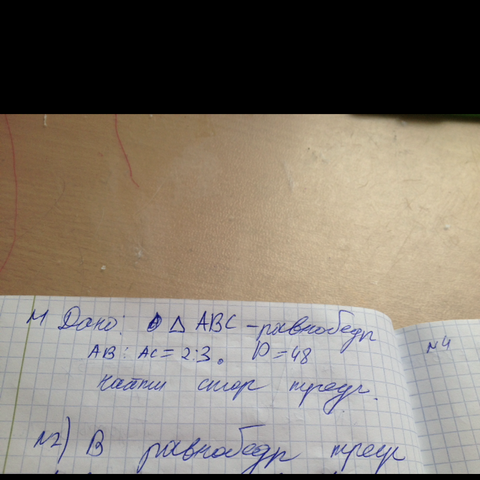 №1 Дано: △ ABC - равнобедр
AB : AC = 2:3. P = 48
найти стор треуг.
№2) В равнобедр треуг
№4